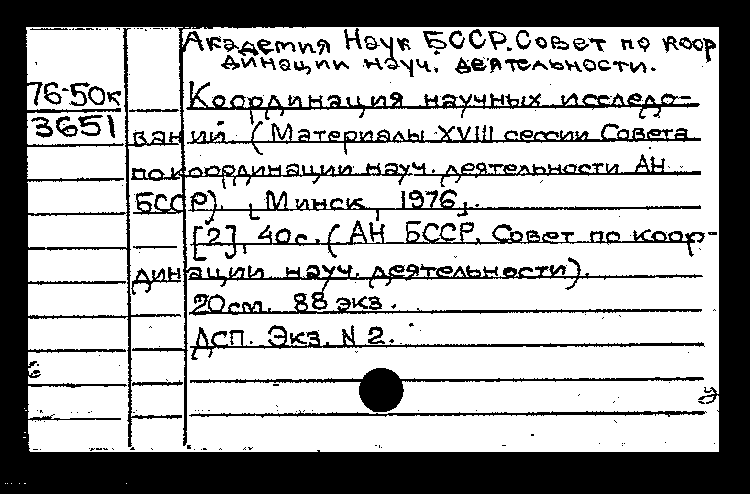 Академия Наук БССР. Совет по коор
динации науч. деятельности.
76-50к
3651
Координация научных исследо-
ваний. (Материалы XVIII сессии Совета
по координации науч. деятельности АН
БССР). [Минск, 1976].
[2], 40с. (АН БССР. Совет по коор-
динации науч. деятельности).
20см. 88 экз.
ДСП. Экз. N 2.
у